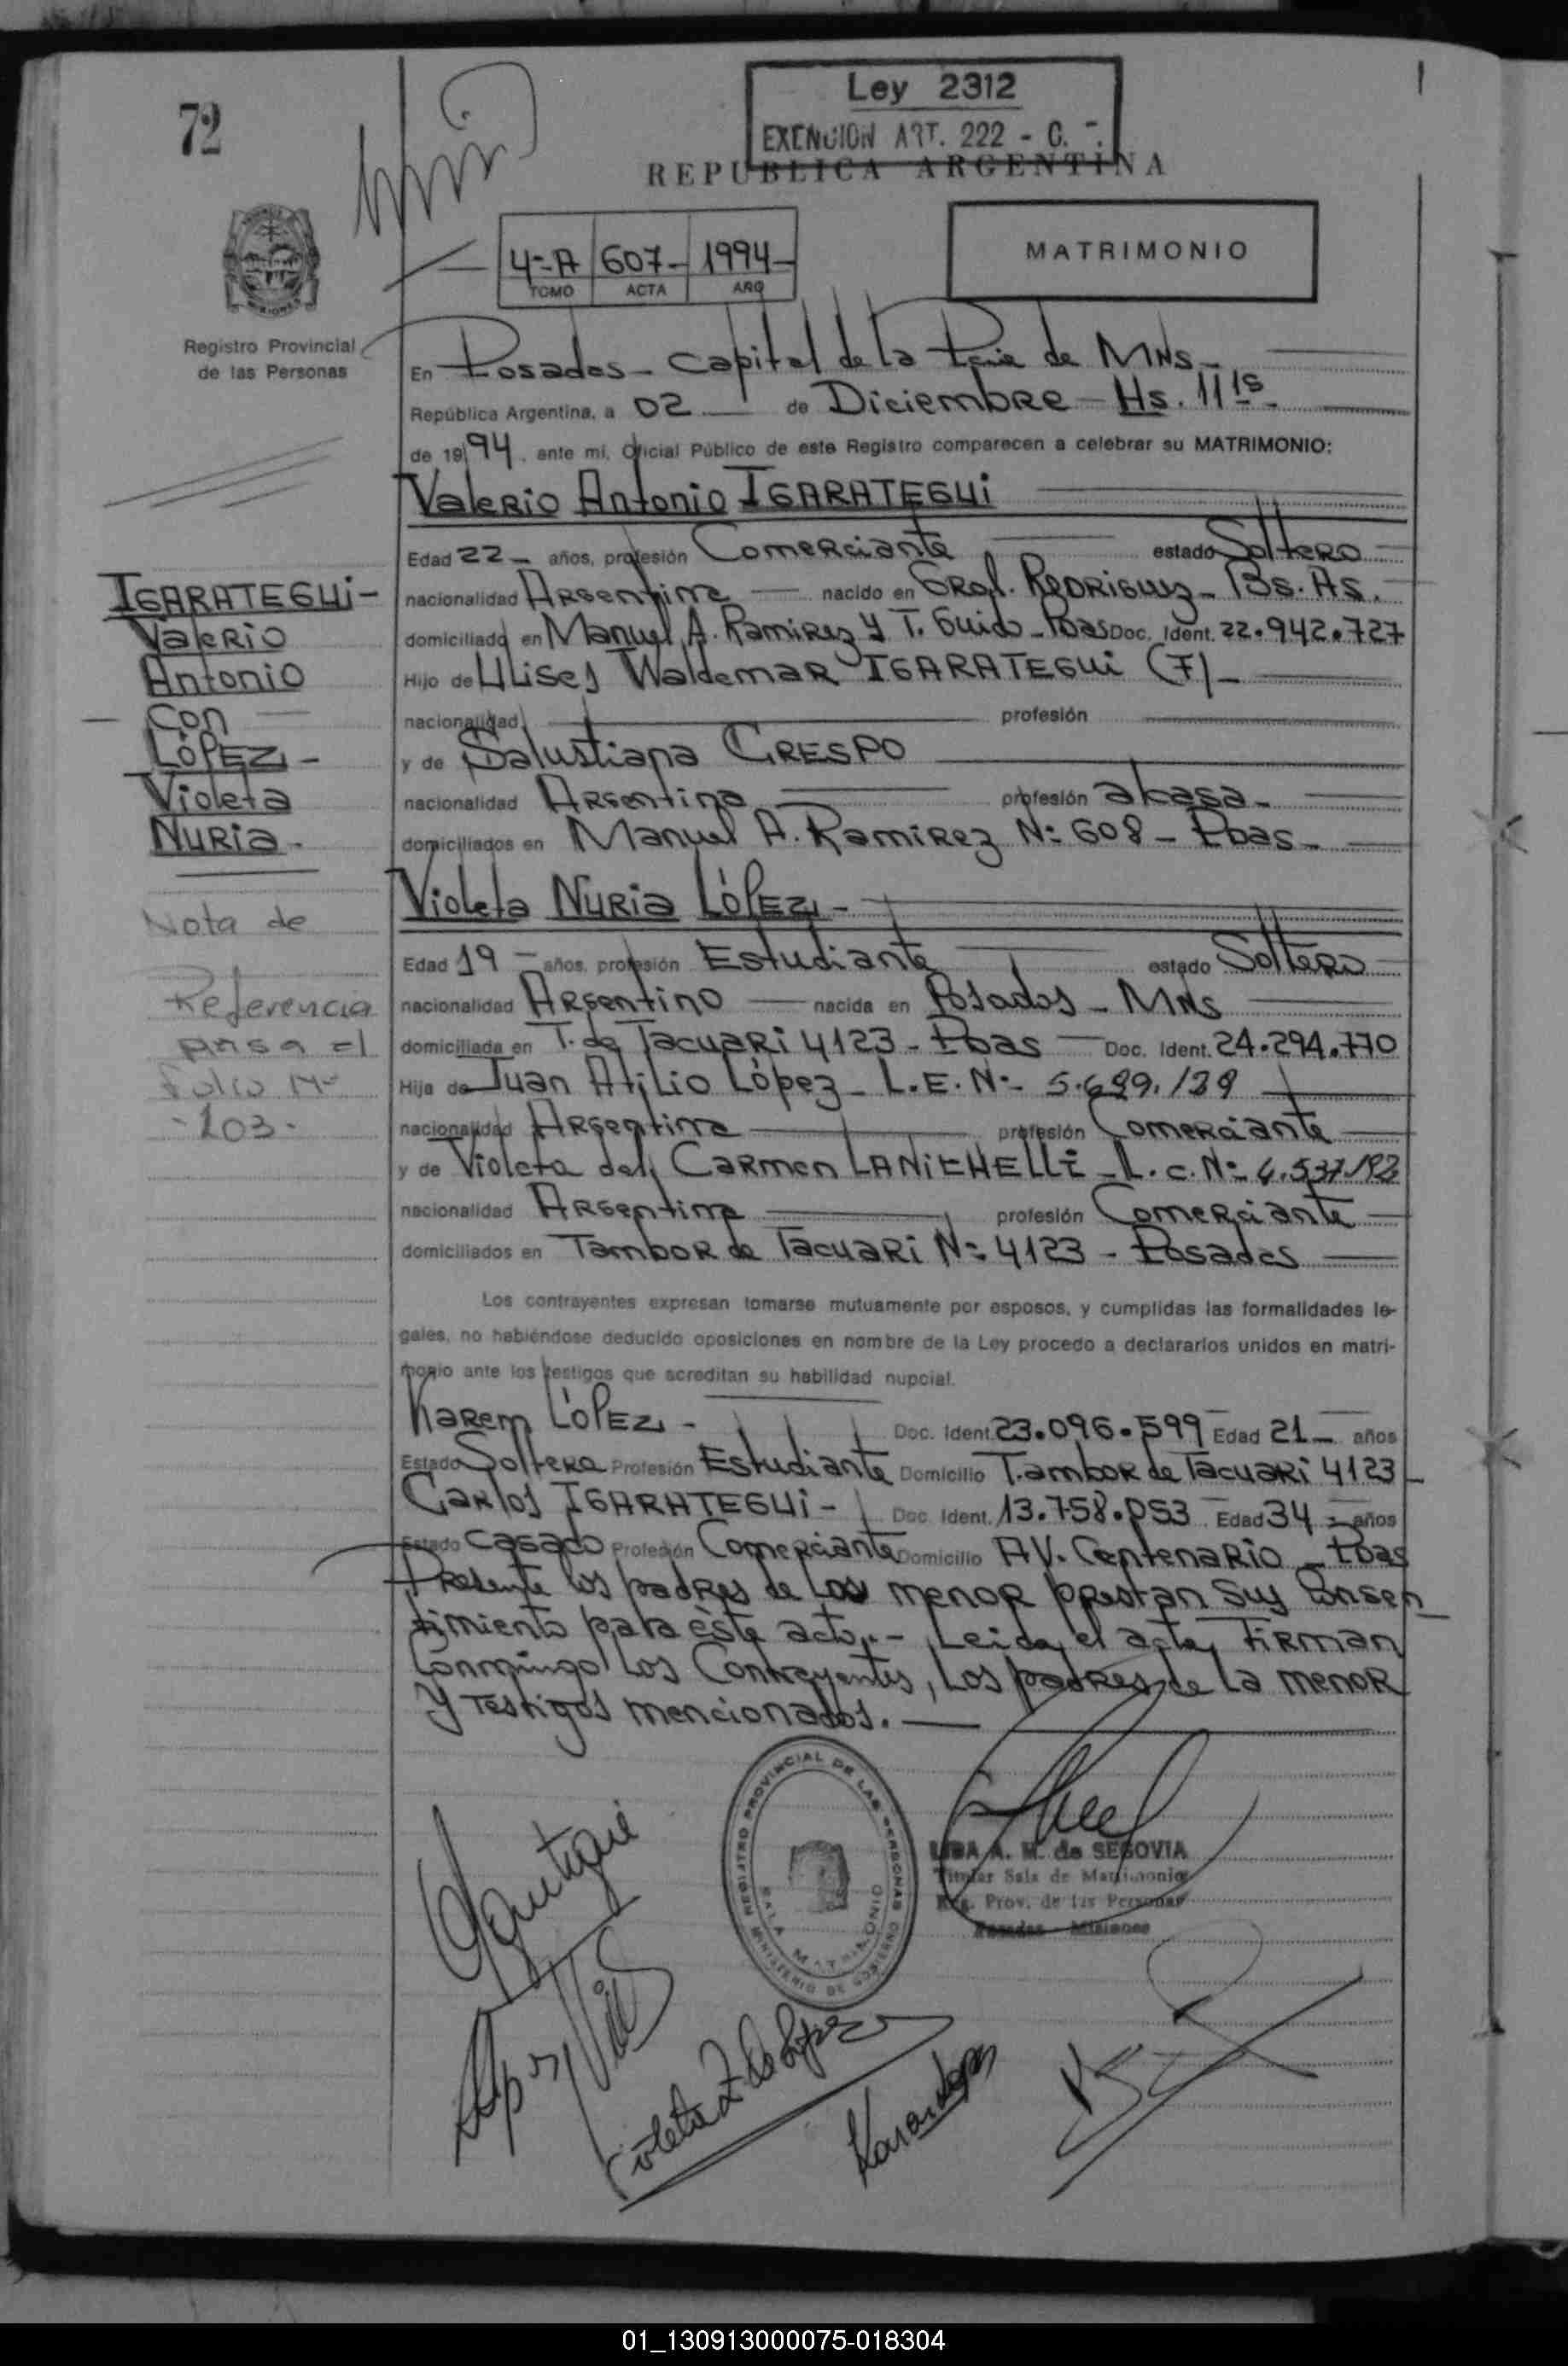 72
Ley 2312
EXENCION ART. 222 - C.
REPUBLICA ARGENTINA
4-A 607- 1994-
TOMO ACTA AÑO
MATRIMONIO
Registro Provincial
de las Personas
En Posadas - Capital de la Pcia de Mns -
República Argentina, a 02 de Diciembre - Hs. 11 15 -
de 1994, ante mí, Oficial Público de este Registro comparecen a celebrar su MATRIMONIO:
Valerio Antonio IGARATEGUI
Edad 22 - años, profesión Comerciante estado Soltero
nacionalidad Argentina nacido en Gral. Rodriguez - Bs. As.
domiciliado en Manuel A. Ramirez y T. Guido - Pdas Doc. Ident. 22.942.727
Hijo de Ulises Waldemar IGARATEGUI (F) -
nacionalidad profesión
y de Salustiana CRESPO
nacionalidad Argentina profesión a/casa -
domiciliados en Manuel A. Ramirez Nº 608 - Pdas -
Violeta Nuria LÓPEZ -
Edad 19 - años, profesión Estudiante estado Soltero
nacionalidad Argentino nacida en Posadas - Mns
domiciliada en T. de Tacuari 4123 - Pdas Doc. Ident. 24.294.770
Hija de Juan Atilio López - L.E. Nº
nacionalidad Argentina profesión Comerciante
y de Violeta del Carmen - L.C. Nº
nacionalidad Argentina profesión Comerciante
domiciliados en Tambor de Tacuari Nº 4123 - Posadas
Los contrayentes expresan tomarse mutuamente por esposos, y cumplidas las formalidades le-
gales, no habiéndose deducido oposiciones en nombre de la Ley procedo a declararlos unidos en matri-
monio ante los testigos que acreditan su habilidad nupcial.
Karem LÓPEZ - Doc. Ident. 23.096.599 Edad 21 - años
Estado Soltera Profesión Estudiante Domicilio Tambor de Tacuari 4123 -
Carlos IGARATEGUI - Doc. Ident. 13.758.053 Edad 34 - años
Estado Casado Profesión Comerciante Domicilio AV. Centenario - Pdas
Presente los padres de la menor prestan sus Consen
timiento para éste acto.- Leida el acta, Firman
Conmigo los Contrayentes, los padres de la menor
y Testigos mencionados.
IGARATEGUI -
Valerio
Antonio
- Con -
LÓPEZ -
Violeta
Nuria -
Nota de
Referencia
pasa al
folio Nº
- 103 -
REGISTRO PROVINCIAL DE LAS PERSONAS
MINISTERIO DE GOBIERNO
SALA MATRIMONIO
LIDA A. M. de SEGOVIA
Titular Sala de Matrimonio
Reg. Prov. de las Personas
Posadas - Misiones
Violeta L de López
Karem López
01_130913000075-018304